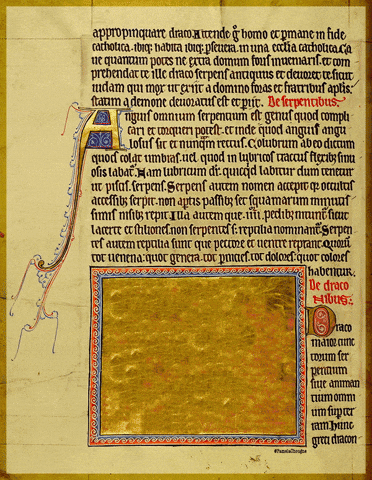 appropinquare draco. Attende g̊ homo et p̱mane in fide
catholica. ibiq; habita ibiq; p̱severa. in una eccl̄ia catholica. Ca
ue quantum potes ne extra domum foris inueniaris. et com
prehendat te ille draco serpens antiquus et deuoret te sicut
iudam qui mox ut exiit a domino foras et fratribus apl̄is
statim a demone deuoratus est et p̱iit. De serpentibus.
Anguis omnium serpentium est genus quod compli
cari et torqueri potest. et inde quod anguis angu
losus sit et nunquam rectus. Colubrum ab eo dictum
quod colat umbras. uel quod in lubricos tractus flexib; sinu
osis labat᷑. Nam lubricum dr̄. quicq̇d labitur dum tenetur
ut piscis. serpens. Serpens autem nomen accepit q̇a occultis
accessib; serpit. non aptis passib; sed squamarum minutis
simis nisib; repit. Illa autem que .iiii. pedib; nitunt᷑. sicut
lacerte et stiliones. non serpentes s; reptilia nominant᷑. Serpen
tes autem reptilia sunt que pectore et uentre reptant. Quorū
tot uenena quot genera. tot pnicies. tot dolores quot colores
habentur.
De draco
nibus.
Draco
maior cunc
torum ser
pentium
siue animan
tium omni
um sup̱ ter
ram hunc
greci dracon
©PamelaThreges